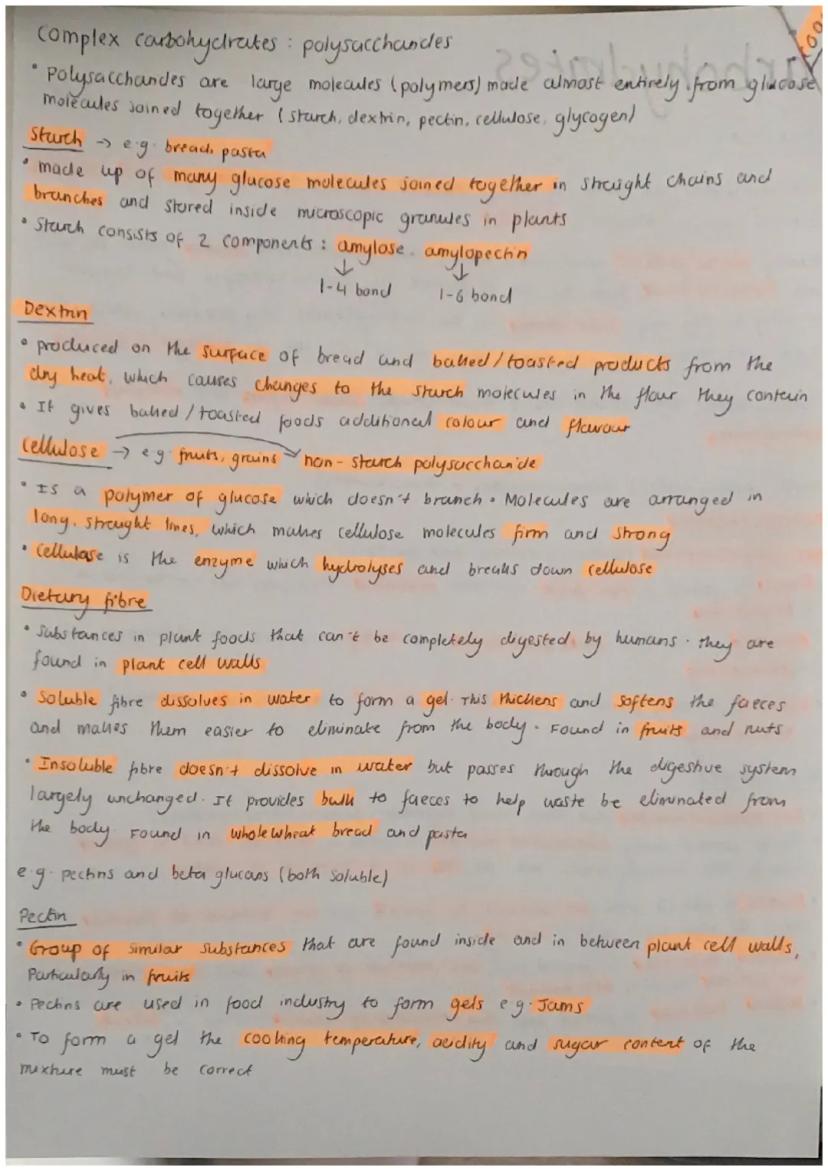 Complex carbohydrates : polysaccharides
• Polysaccharides are large molecules (polymers) made almost entirely from glucose
molecules joined together (starch, dextrin, pectin, cellulose, glycogen)
Starch → e.g. bread, pasta
• made up of many glucose molecules joined together in straight chains and
branches and stored inside microscopic granules in plants
• Starch consists of 2 components : amylose, amylopectin
↓ ↓
1-4 bond 1-6 bond
Dextrin
• produced on the surface of bread and baked/toasted products from the
dry heat, which causes changes to the starch molecules in the flour they contain
• It gives baked/toasted foods additional colour and flavour
Cellulose → e.g. fruits, grains non-starch polysaccharide
• Is a polymer of glucose which doesn't branch. Molecules are arranged in
long, straight lines, which makes cellulose molecules firm and strong
• Cellulase is the enzyme which hydrolyses and breaks down cellulose
Dietary fibre
• Substances in plant foods that can't be completely digested by humans. They are
found in plant cell walls
• Soluble fibre dissolves in water to form a gel. This thickens and softens the faeces
and makes them easier to eliminate from the body. Found in fruits and nuts
• Insoluble fibre doesn't dissolve in water but passes through the digestive system
largely unchanged. It provides bulk to faeces to help waste be eliminated from
the body. Found in wholewheat bread and pasta
e.g. pectins and beta glucans (both soluble)
Pectin
• Group of similar substances that are found inside and in between plant cell walls,
Particularly in fruits
• Pectins are used in food industry to form gels e.g. Jams
• To form a gel the cooking temperature, acidity and sugar content of the
mixture must be correct